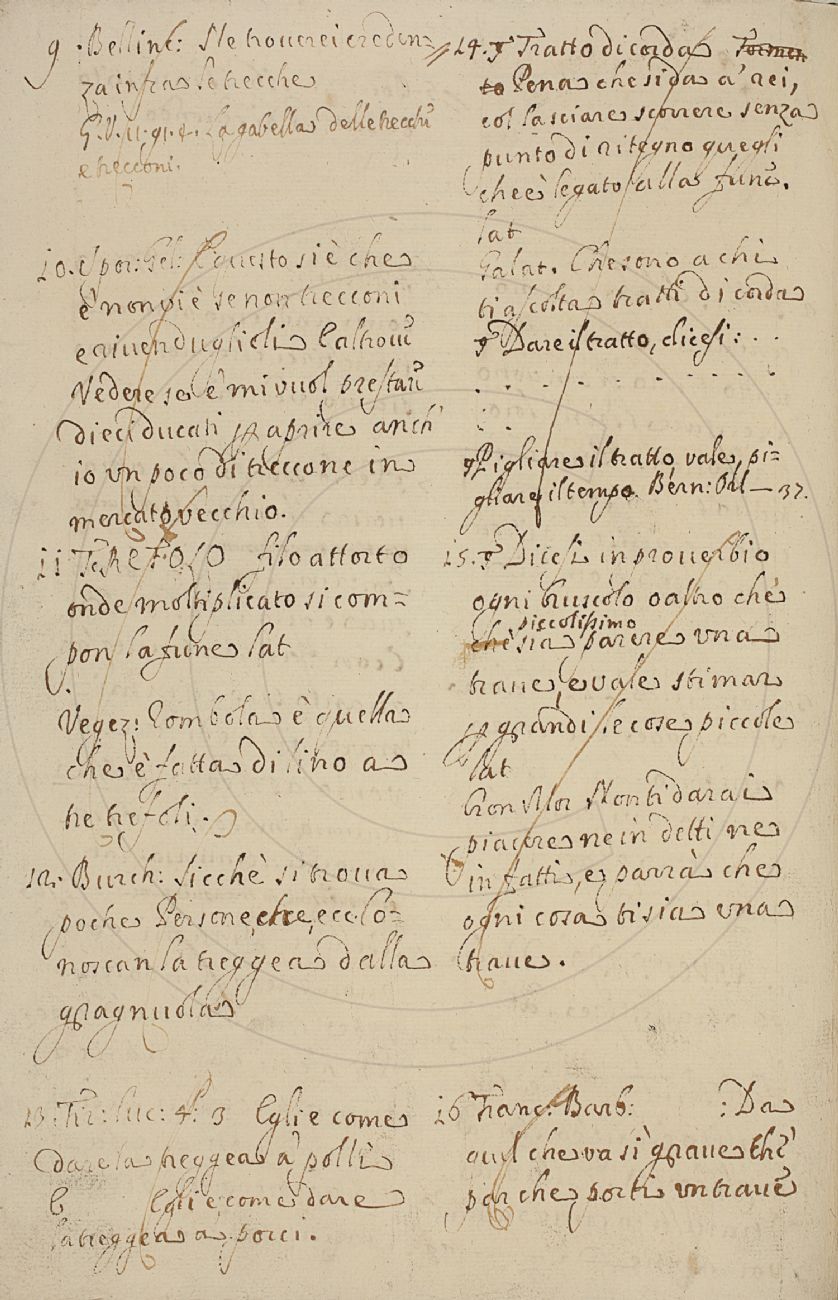 9. Bellinc: Ne trouerei creden=
za infra le trecche
G. V. 11. 91. 4. La gabella delle trecche
e trecconi.
10. Spor: Gel: E questo si è che
e' non vi è se non trecconi
e riuenduglioli E altroue
Vedere se e' mi vuol prestare
dieci ducati p aprire anch'
io vn poco di treccone in
mercato vecchio.
11 TREFOLO filo attorto
onde moltiplicato si com=
pon la fune lat
Vegez: Tombola è quella
che è fatta di lino a
tre trefoli.
12. Burch: Sicchè si troua
poche Persone che, ec co=
noscan la treggea dalla
gragnuola
13. Fir: luc: 4. 3 Egli e come
dare la treggea a' polli
E Egli e come dare
la treggea a' porci.
14. Tratto di corda Tormen
to Pena che si da a' rei,
col lasciare scorrere senza
punto di ritegno quegli
che è legato alla fune.
lat
Galat. Che sono a chi
ti ascolta tratti di corda
Dare il tratto, dicesi: . .
. . . . . . . . . .
. .
Pigliare il tratto vale, pi=
gliare il tempo. Bern: Orl — 37.
15. Dicesi in prouerbio
ogni bruscolo o altro che
piccolissimo
che sia parere vna
traue, e vale stimar
p grandi le cose piccole
lat
Non ti darai
piacere ne in detti ne
in fatti, e parrà che
ogni cosa ti sia vna
traue.
16 Franc: Barb: : Da
quel che va sì graue che
par che porti vn traue